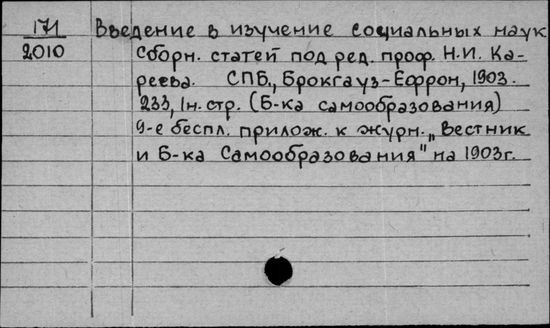 171 Введение в изучение социальных наук
2010 Сборн. статей под ред. проф. Н.И. Ка-
реева. СПБ., Брокгауз-Ефрон, 1903.
233, 1н. стр. (Б-ка самообразования)
9-е беспл. прилож. к журн. „Вестник
и Б-ка Самообразования" на 1903г.